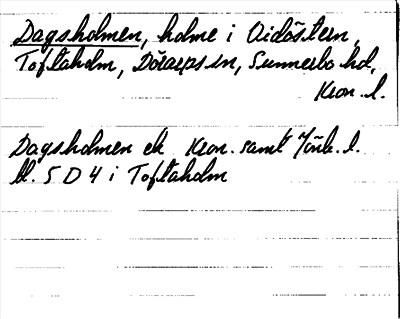 Dagsholmen, holme i Vidöstern,
Toftaholm, Dörarps sn, Sunnerbo hd,
Kron. l.
Dagsholmen ek Kron. samt Jönk. l.
bl. 5 D 4 i Toftaholm